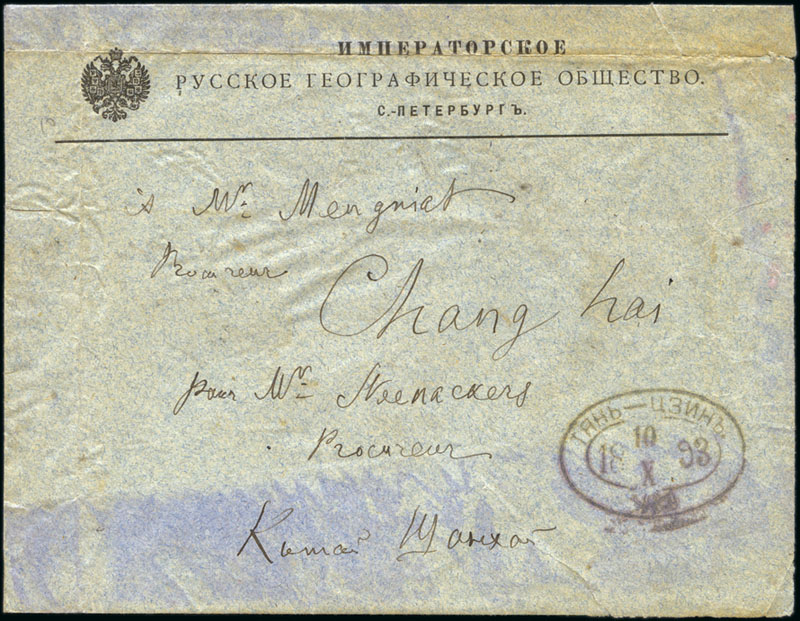 ИМПЕРАТОРСКОЕ
РУССКОЕ ГЕОГРАФИЧЕСКОЕ ОБЩЕСТВО.
С.-ПЕТЕРБУРГЪ.
à Mr. Mengniot
Procureur
Chang hai
pour Mr. Steenackers
Procureur
Китай Шанхай
ТЯНЬ—ЦЗИНЬ
10
18 93
X